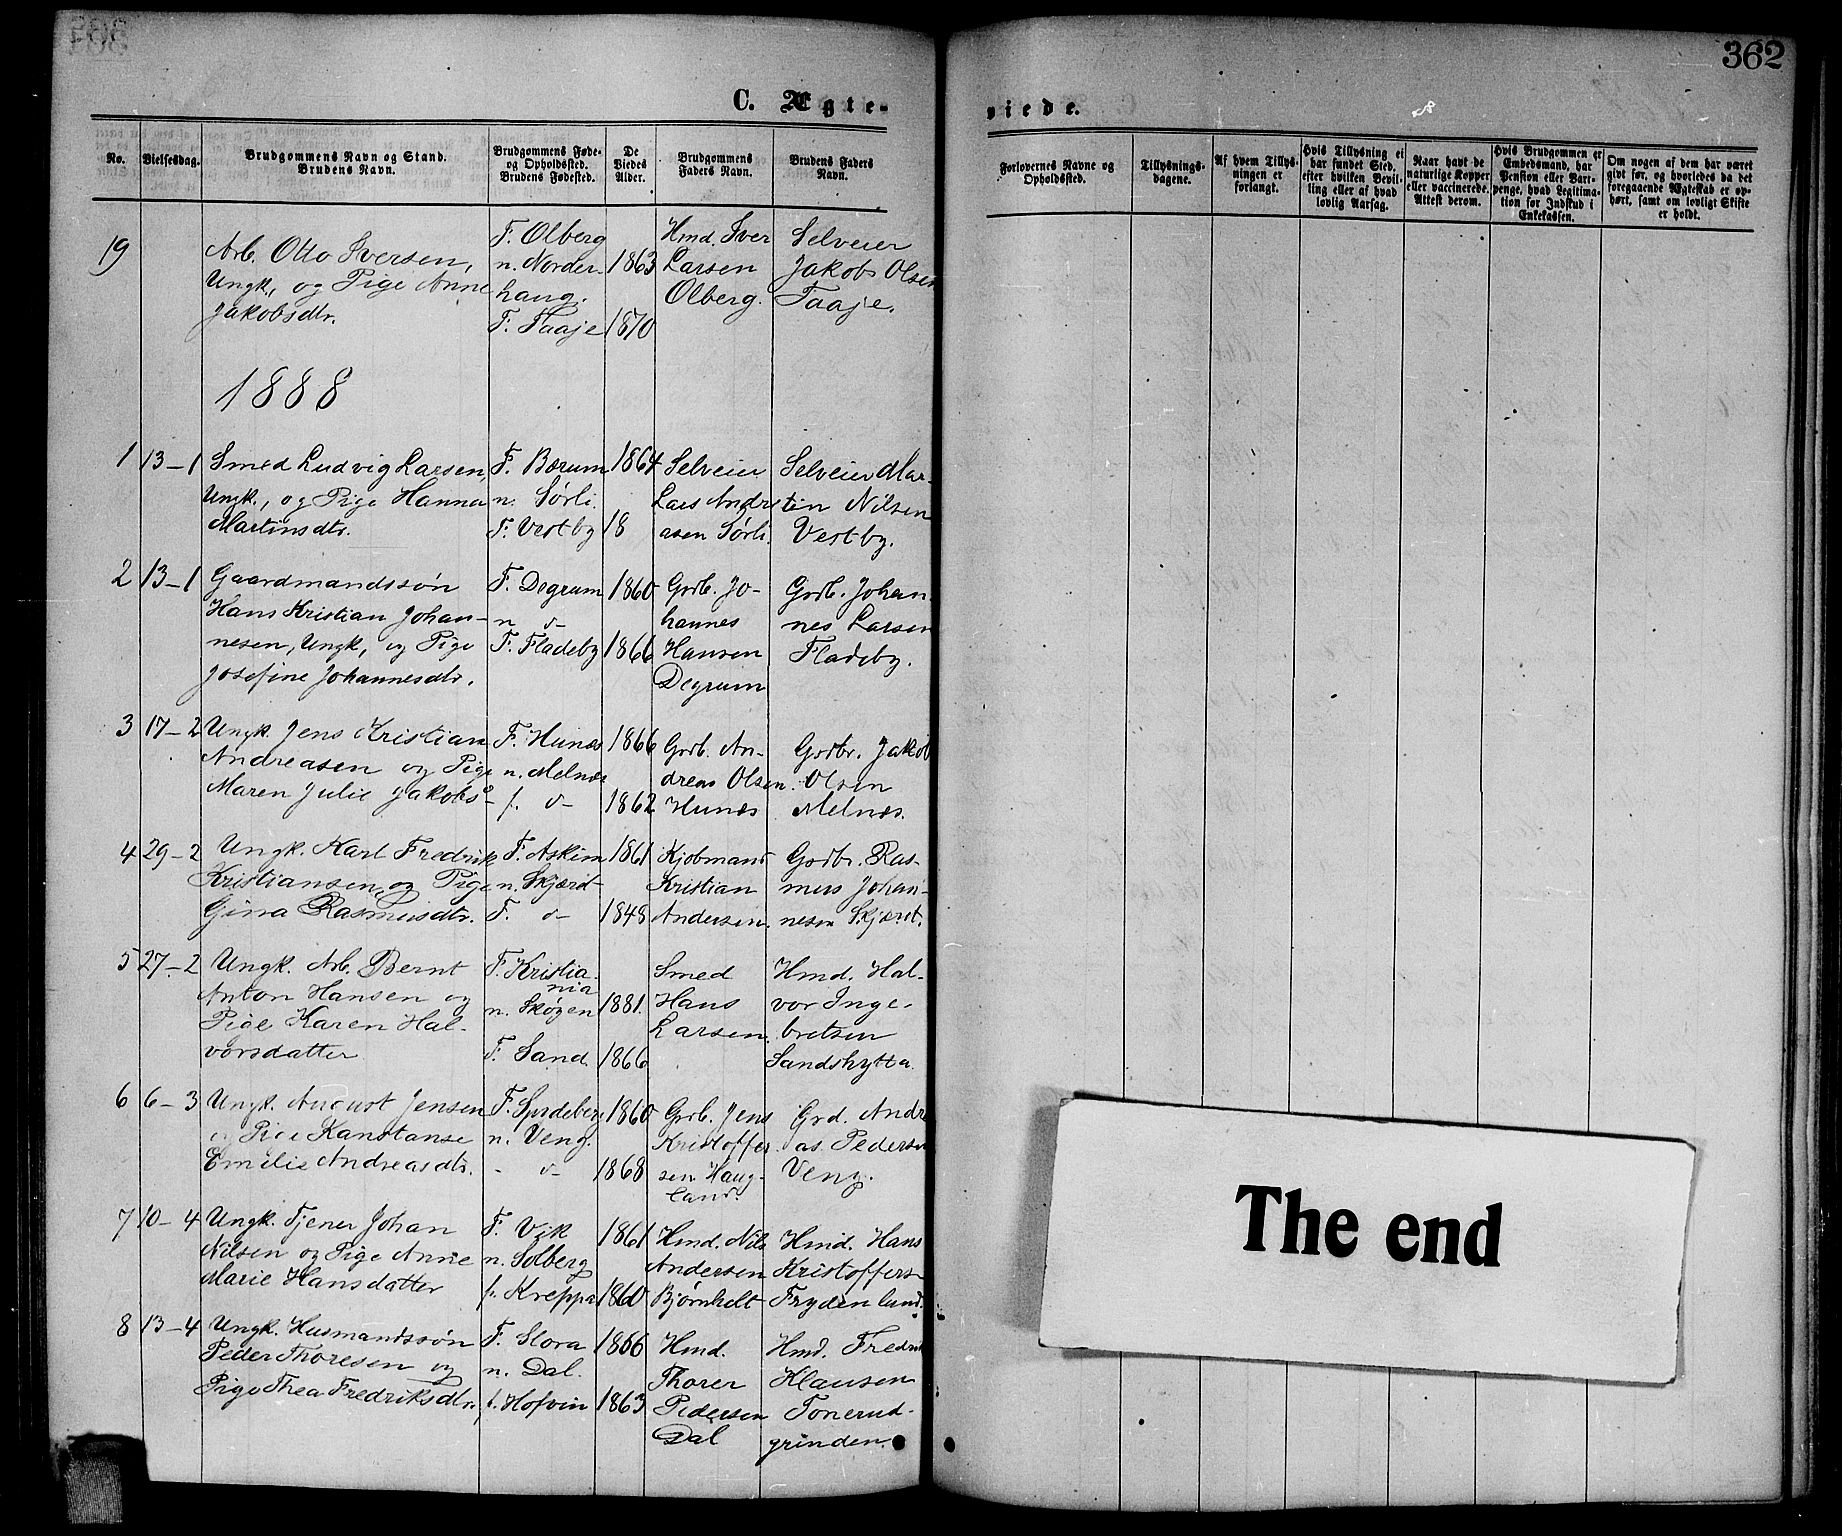 362
C. Ægte-
viede.
No.
Vielsesdag.
Brudgommens Navn og Stand.
Brudens Navn.
Brudgommens Føde-
og Opholdssted.
Brudens Fødested.
De
Viedes
Alder.
Brudgommens
Faders Navn.
Brudens Faders
Navn.
Forlovernes Navne og
Opholdssted.
Tillysnings-
dagene.
Af hvem Tillys-
ningen er
forlangt.
Hvis Tillysning ei
har fundet Sted,
efter hvilken Bevil-
ling eller af hvad
lovlig Aarsag.
Naar havt de
naturlige Kopper
eller vaccinerede.
Attest derom.
Hvis Brudgommen er
Embedsmand, har
Pension eller Vart-
penge, hvad Legitima-
tion for Indskud i
Enkekassen.
Om nogen af dem har været
givt før, og hvorledes da det
foregaaende Ægteskab er op-
hørt, samt om lovligt Skifte
er holdt.
19
Arb. Otto Iversen,
Ungk., og Pige Anne
Jakobsdtr.
F. Olberg
n. Norder-
haug.
F. Taaje
1863
1870
Hmd. Iver
Larsen
Olberg.
Selveier
Jakob Olsen
Taaje.
1888
1
13-1
Smed Ludvig Larsen,
Ungk., og Pige Hanna
Martinsdtr.
F. Bærum
n. Sørli.
F. Vestby
1864
18
Selveier
Lars Andre-
asen Sørli.
Selveier Mar-
tin Nilsen
Vestby.
2
13-1
Gaardmandssøn
Hans Kristian Johan-
nesen, Ungk, og Pige
Josefine Johannesdtr.
F. Degrum
n. d-
F. Fladeby
1860
1866
Grdb. Jo-
hannes
Hansen
Degrum
Grdb. Johan-
nes Larsen
Fladeby.
3
17-2
Ungk. Jens Kristian
Andreasen og Pige
Maren Julie Jakobsd-
F. Hunæs
n. Melnæs
f. d-
1866
1862
Grdb. An-
dreas Olsen
Hunæs
Grdbr. Jakob
Olsen
Melnæs.
4
29-2
Ungk. Karl Fredrik
Kristiansen, og Pige
Gina Rasmusdtr.
F. Askim
n. Skjæret
F. d-
1861
1848
Kjøbmand
Kristian
Andersen.
Grdbr. Ras-
mus Johan-
nesen Skjæret.
5
27-2
Ungk. Arb. Bernt
Anton Hansen og
Pige Karen Hal-
vorsdatter
F. Kristia-
nia
n. Skogen
F. Sand.
1881.
1866
Smed
Hans
Larsen.
Hmd. Hal-
vor Inge-
bretsen
Sandshytta
6
6-3
Ungk. August Jensen
og Pige Kanstanse
Emilie Andreasdtr.
F. Spydeberg
n. Veng.
- d-
1860
1868
Grdb. Jens
Kristoffer-
sen Haug-
land.
Grd. Andre-
as Pedersen
Veng.
7
10-4
Ungk. Tjener Johan
Nilsen og Pige Anne
Marie Hansdatter
F. Vik
n. Solberg
f. Kreppa
1861
1860
Hmd. Nils
Andersen
Bjørnholt
Hmd. Hans
Kristoffers-
Frydenlund.
8
13-4
Ungk. Husmandssøn
Peder Thoresen og
Pige Thea Fredriksdtr.
F. Slora
n. Dal.
f. Hofvin
1866
1863
Hmd.
Thorer
Pedersen
Dal
Hmd. Fredrik
Klausen
Tonerud-
grinden.
The end